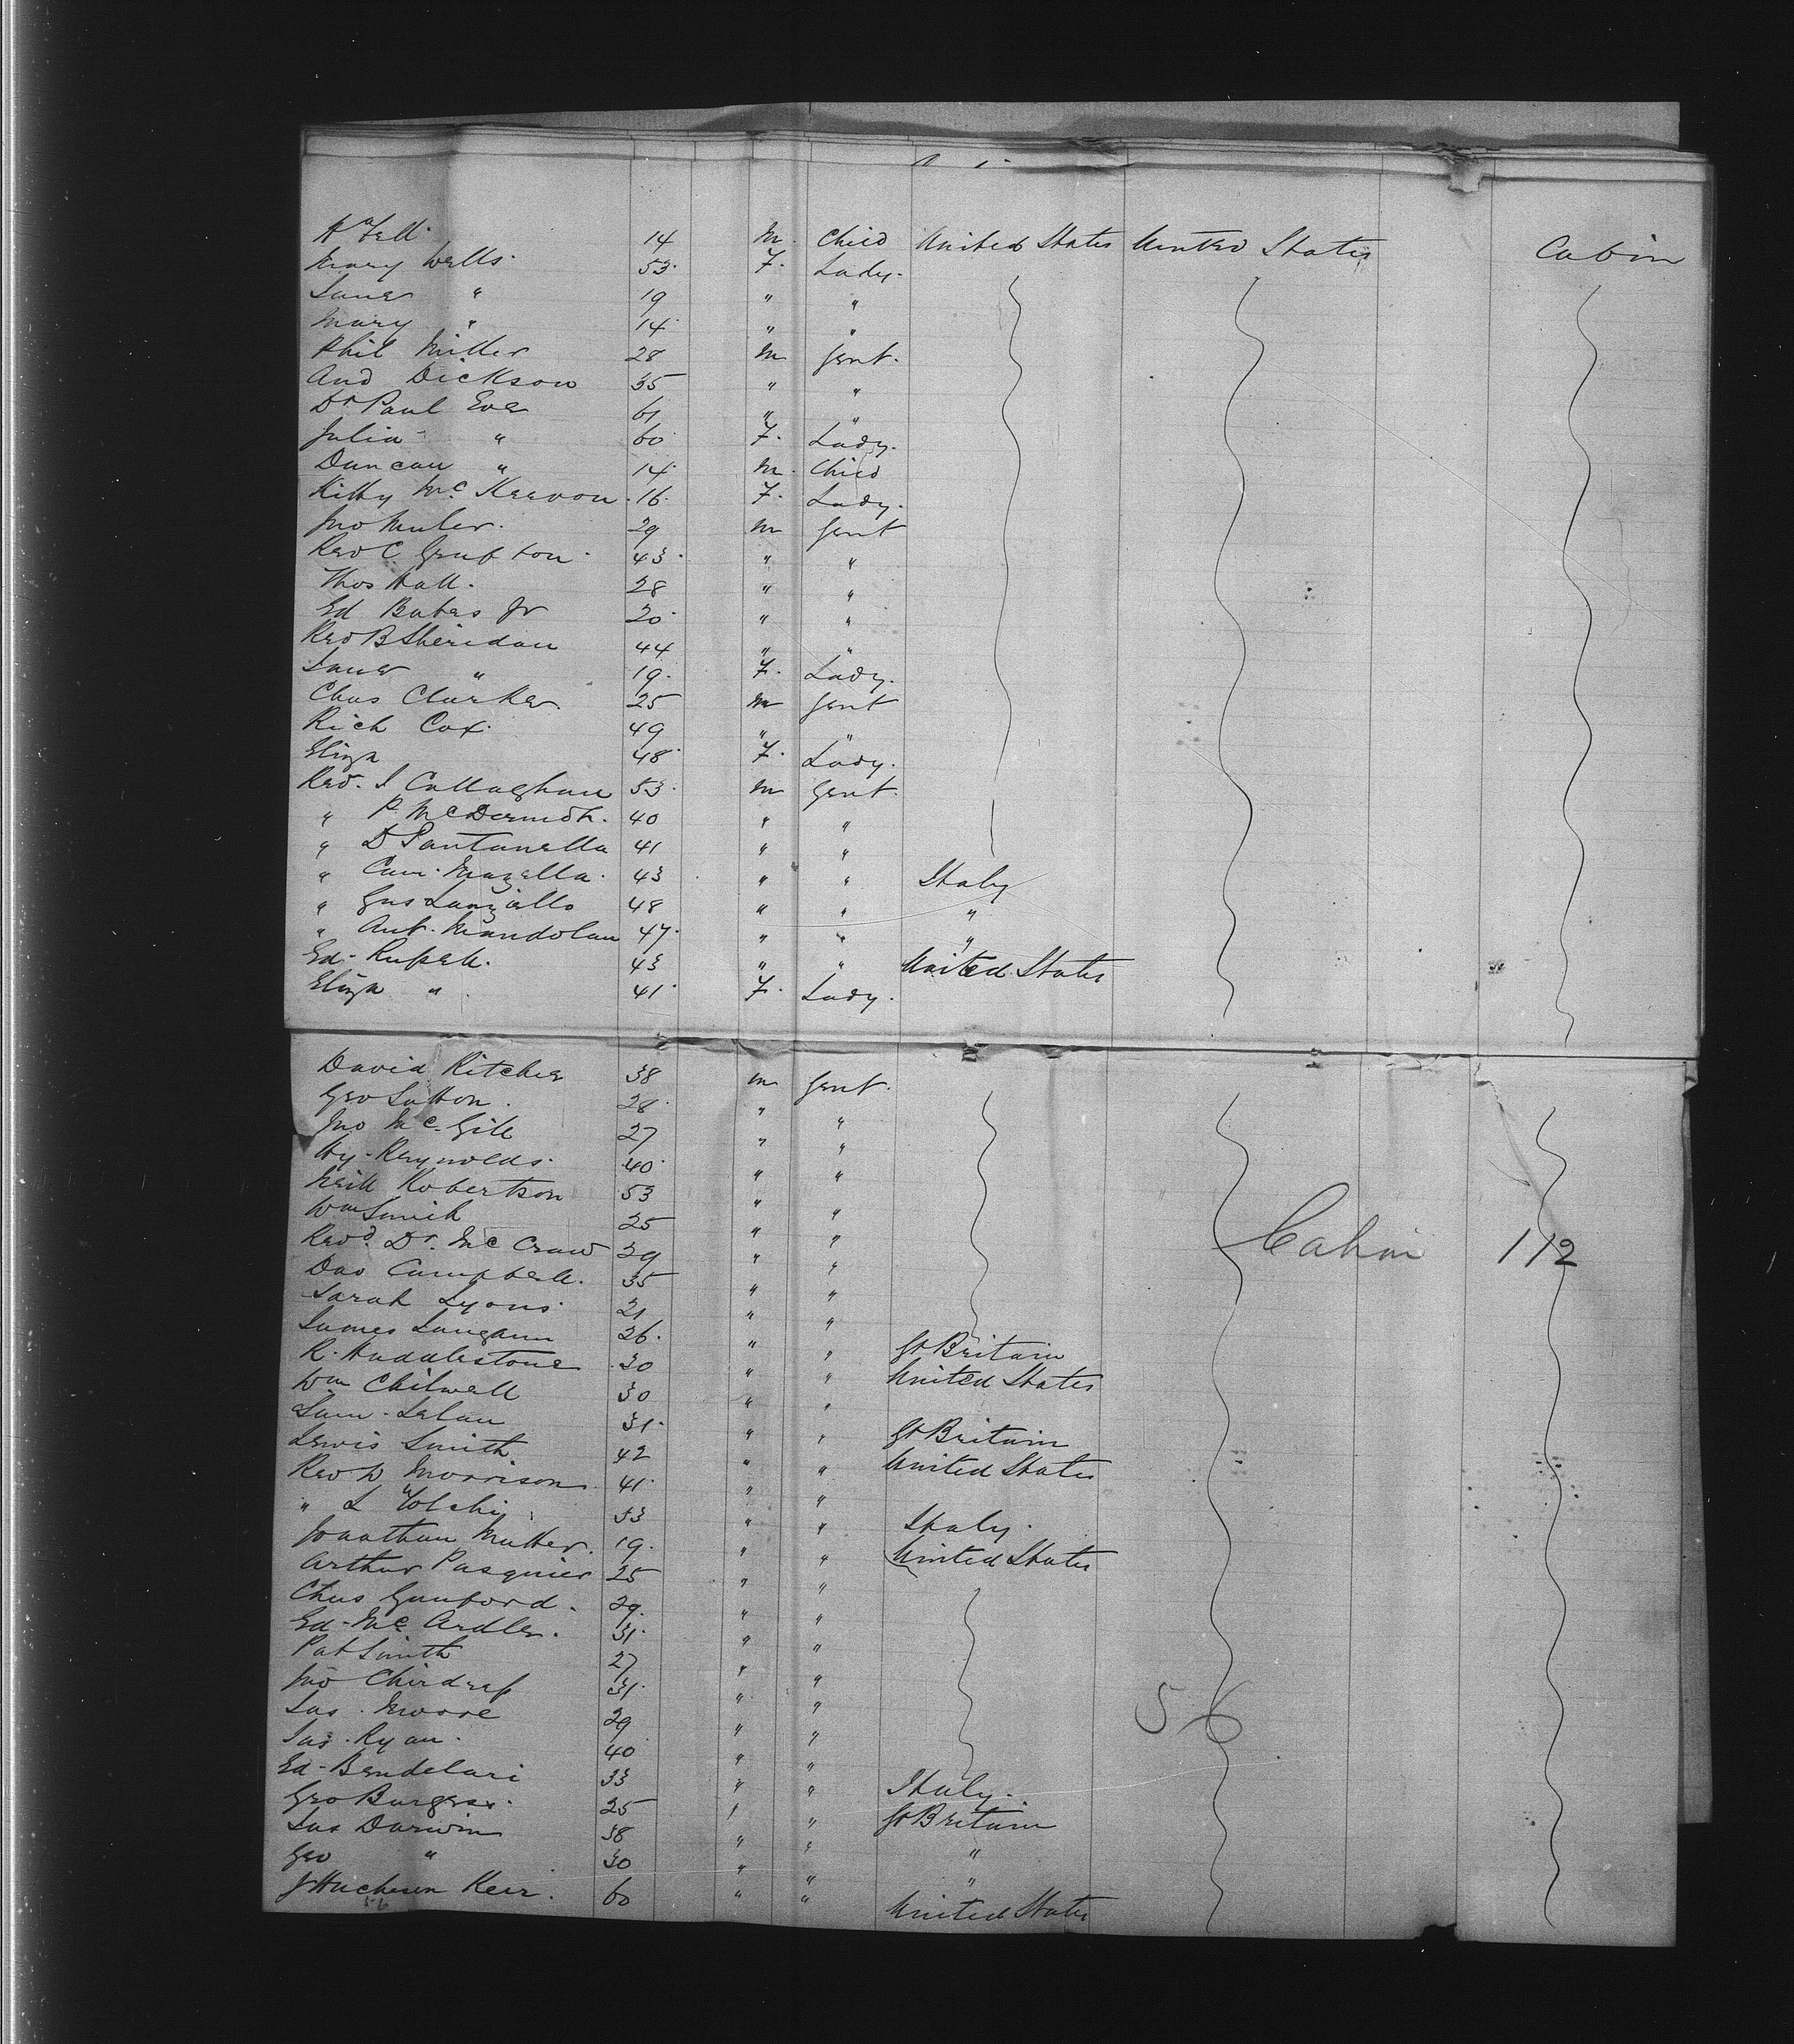 Hy Fell 14 M. Child United States United States Cabin
Mary Wells. 53. F. Lady.
Jane " 19 " "
Mary " 14. " "
Phil Miller 28 M Gent.
And Dickson 35 " "
Dr Paul Eve 61 " "
Julia " 60 F. Lady.
Duncan " 14. M. Child
Kitty Mc 16. F. Lady.
Jno 29 M Gent
Revd C Grafton 43. " "
Thos Hall. 28 " "
Ed Bates Jr 20. " "
Revd B Sheridan 44 " "
Jane " 19. F. Lady.
Chas Clarke. 25 M Gent
Rich Cox. 49 " "
Eliza 48. F. Lady.
Revd. J Callaghan 53. M Gent.
" P McDermott. 40 " "
" D Pantanella 41 " "
" Cam. Mazella. 43 " " Italy
" Gus Lanzallo 48 " " "
" Ant. Mandolan 47. " " "
Ed- 43 " " United States
Eliza " 41. F. Lady.
David Ritchie 38 M Gent.
Geo Sutton. 28. " "
Jno McGill 27 " "
Hy- Reynolds. 40. " "
Neill Robertson 53 " "
Wm Smith 25 " "
Revd. Dr. McCraw 29 " " Cabin 112
Dav Campbell. 35 " "
Sarah Lyons. 21 " "
James Langann 26. " " Gt Britain
R. Huddlestone 30 " " United States
Wm Chilwell 30 " "
Sam- 31. " " Gt Britain
Lewis Smith 42 " " United States
Revd W Morrison 41. " "
" L 53 " " Italy.
Jonathan 19. " " United States
Arthur Pasquier 25 " "
Chas Gunford. 29. " "
Ed- McArdle. 31. " "
Pat Smith 27 " "
Jno 31. " "
Jas. Moore 29 " " 56
Jas. Ryan. 40 " "
Ed- Bendelari 33 " " Italy.
Geo Burgess. 25 " " Gt Britain
Jas Darwin 38 " " "
Geo " 30 " " "
J Hucheson Keir. 60 " " United States
56